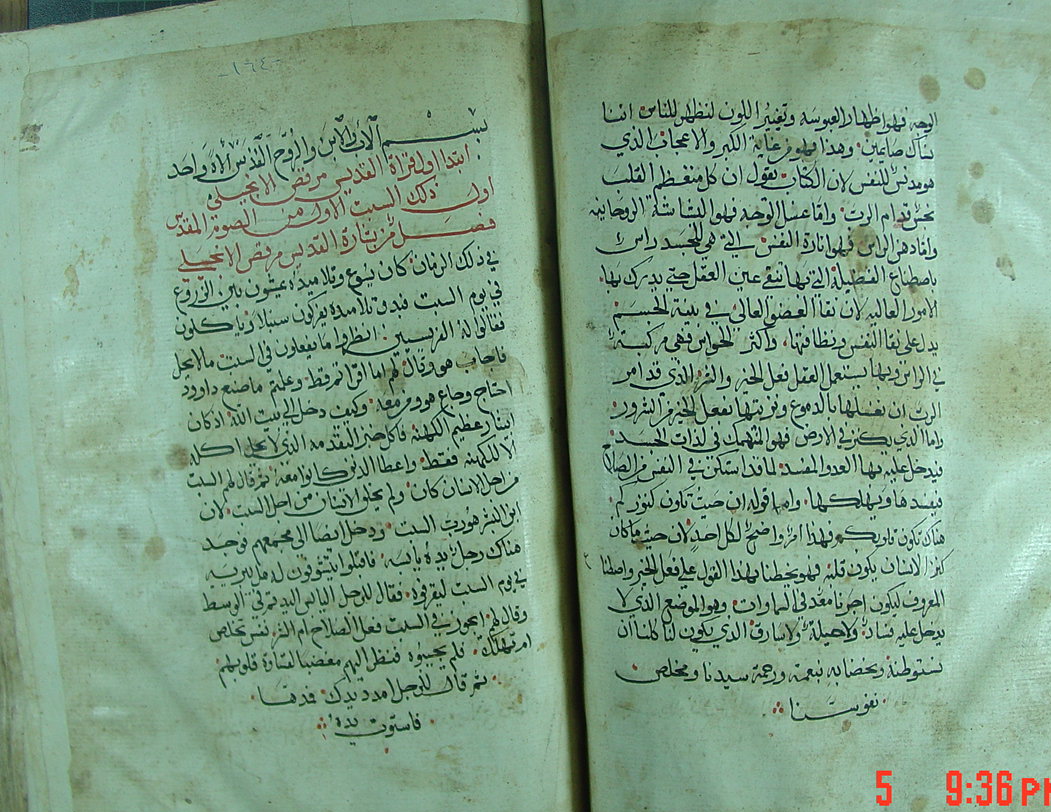 الوجه فهو اظهار العبوسه وتغيير اللون لنظهر للناس اننا
نساك صايمين وهذا فهو من غاية الكبر والاعجاب الذي
هو مدنس للنفس لان الكتاب يقول ان كل متعظم القلب
نجس قدام الرب واما غسل الوجه فهو البشاشه الروحانيه
واما دهن الراس فهو انارة النفس التي هي للجسد راس
باصطناع الفضيلة التي بها تنقى عين العقل حتى يدرك بها
الامور العاليه لان نقا العضو العالي في بنية الجسم
يدل على نقا النفس ونظافتها واكثر الحواس فهي مركبة
في الراس وبها يستعمل العقل فعل الخير والشر الذي قد امر
الرب ان نغسلها بالدموع ونزينها بفعل الخير من الشرور
واما الذي يكنز في الارض فهو المنهمك في لذات الجسد
فيدخل عليه بها العدو المفسد لما قد استكن في النفس من الصلاح
فيفسدها ويهلكها واما قوله ان حيث تكون كنوزكم
هناك تكون قلوبكم فهذا امر واضح لكل احد لان حيث ما كان
كنز الانسان يكون قلبه فهو يحضنا بهذا القول على فعل الخير واصطناع
المعروف ليكون اجرنا معد في السماوات وهو الموضع الذي لا
يدخل عليه فساد ولا حيلة ولا سارق الذي يكون لنا كلنا ان
نستوطنه ونحضا به بنعمة ورحمة سيدنا ومخلص
نفوسنا
١٦٤
بسم الاب والابن والروح القدس الاه واحد
ابتدا اول قراة القديس مرقص الانجيلي
اول ذلك السبت الاول من الصوم المقدس
فصل من بشارة القديس مرقص الانجيلي
في ذلك الزمان كان يسوع وتلاميذه يمشون بين الزروع
في يوم السبت فبدو تلاميذه يفركون سنبلا وياكلون
فقالوا له الفريسيين انظروا ما يفعلون في السبت ما لا يحل
فاجاب هو وقال لهم اما اقراتم قط وعلمتم ما صنع داوود
احتاج وجاع هو ومن معه وكيف دخل الى بيت الله اذ كان
ابيتار عظيم الكهنة فاكل خبز التقدمه الذي لا يحل اكله
الا للكهنه فقط واعطا الذين كانوا معه ثم قال لهم السبت
من اجل الانسان كان ولم يخلق الانسان من اجل السبت لان
ابن البشر هو رب السبت ودخل ايضا الى مجمعهم فوجد
هناك رجل يده يابسه فاقبلوا يتشوفون له هل يبريه
في يوم السبت ليقرفوه فقال للرجل اليابس اليد قم في الوسط
وقال لهم ايجوز في السبت فعل الصلاح ام الشر نفس تخلص
ام تهلك فلم يجيبوه فنظر اليهم مغضبا لقساوة قلوبهم
ثم قال للرجل امدد يدك فمدها
فاستوت يده
5 9:36 PM